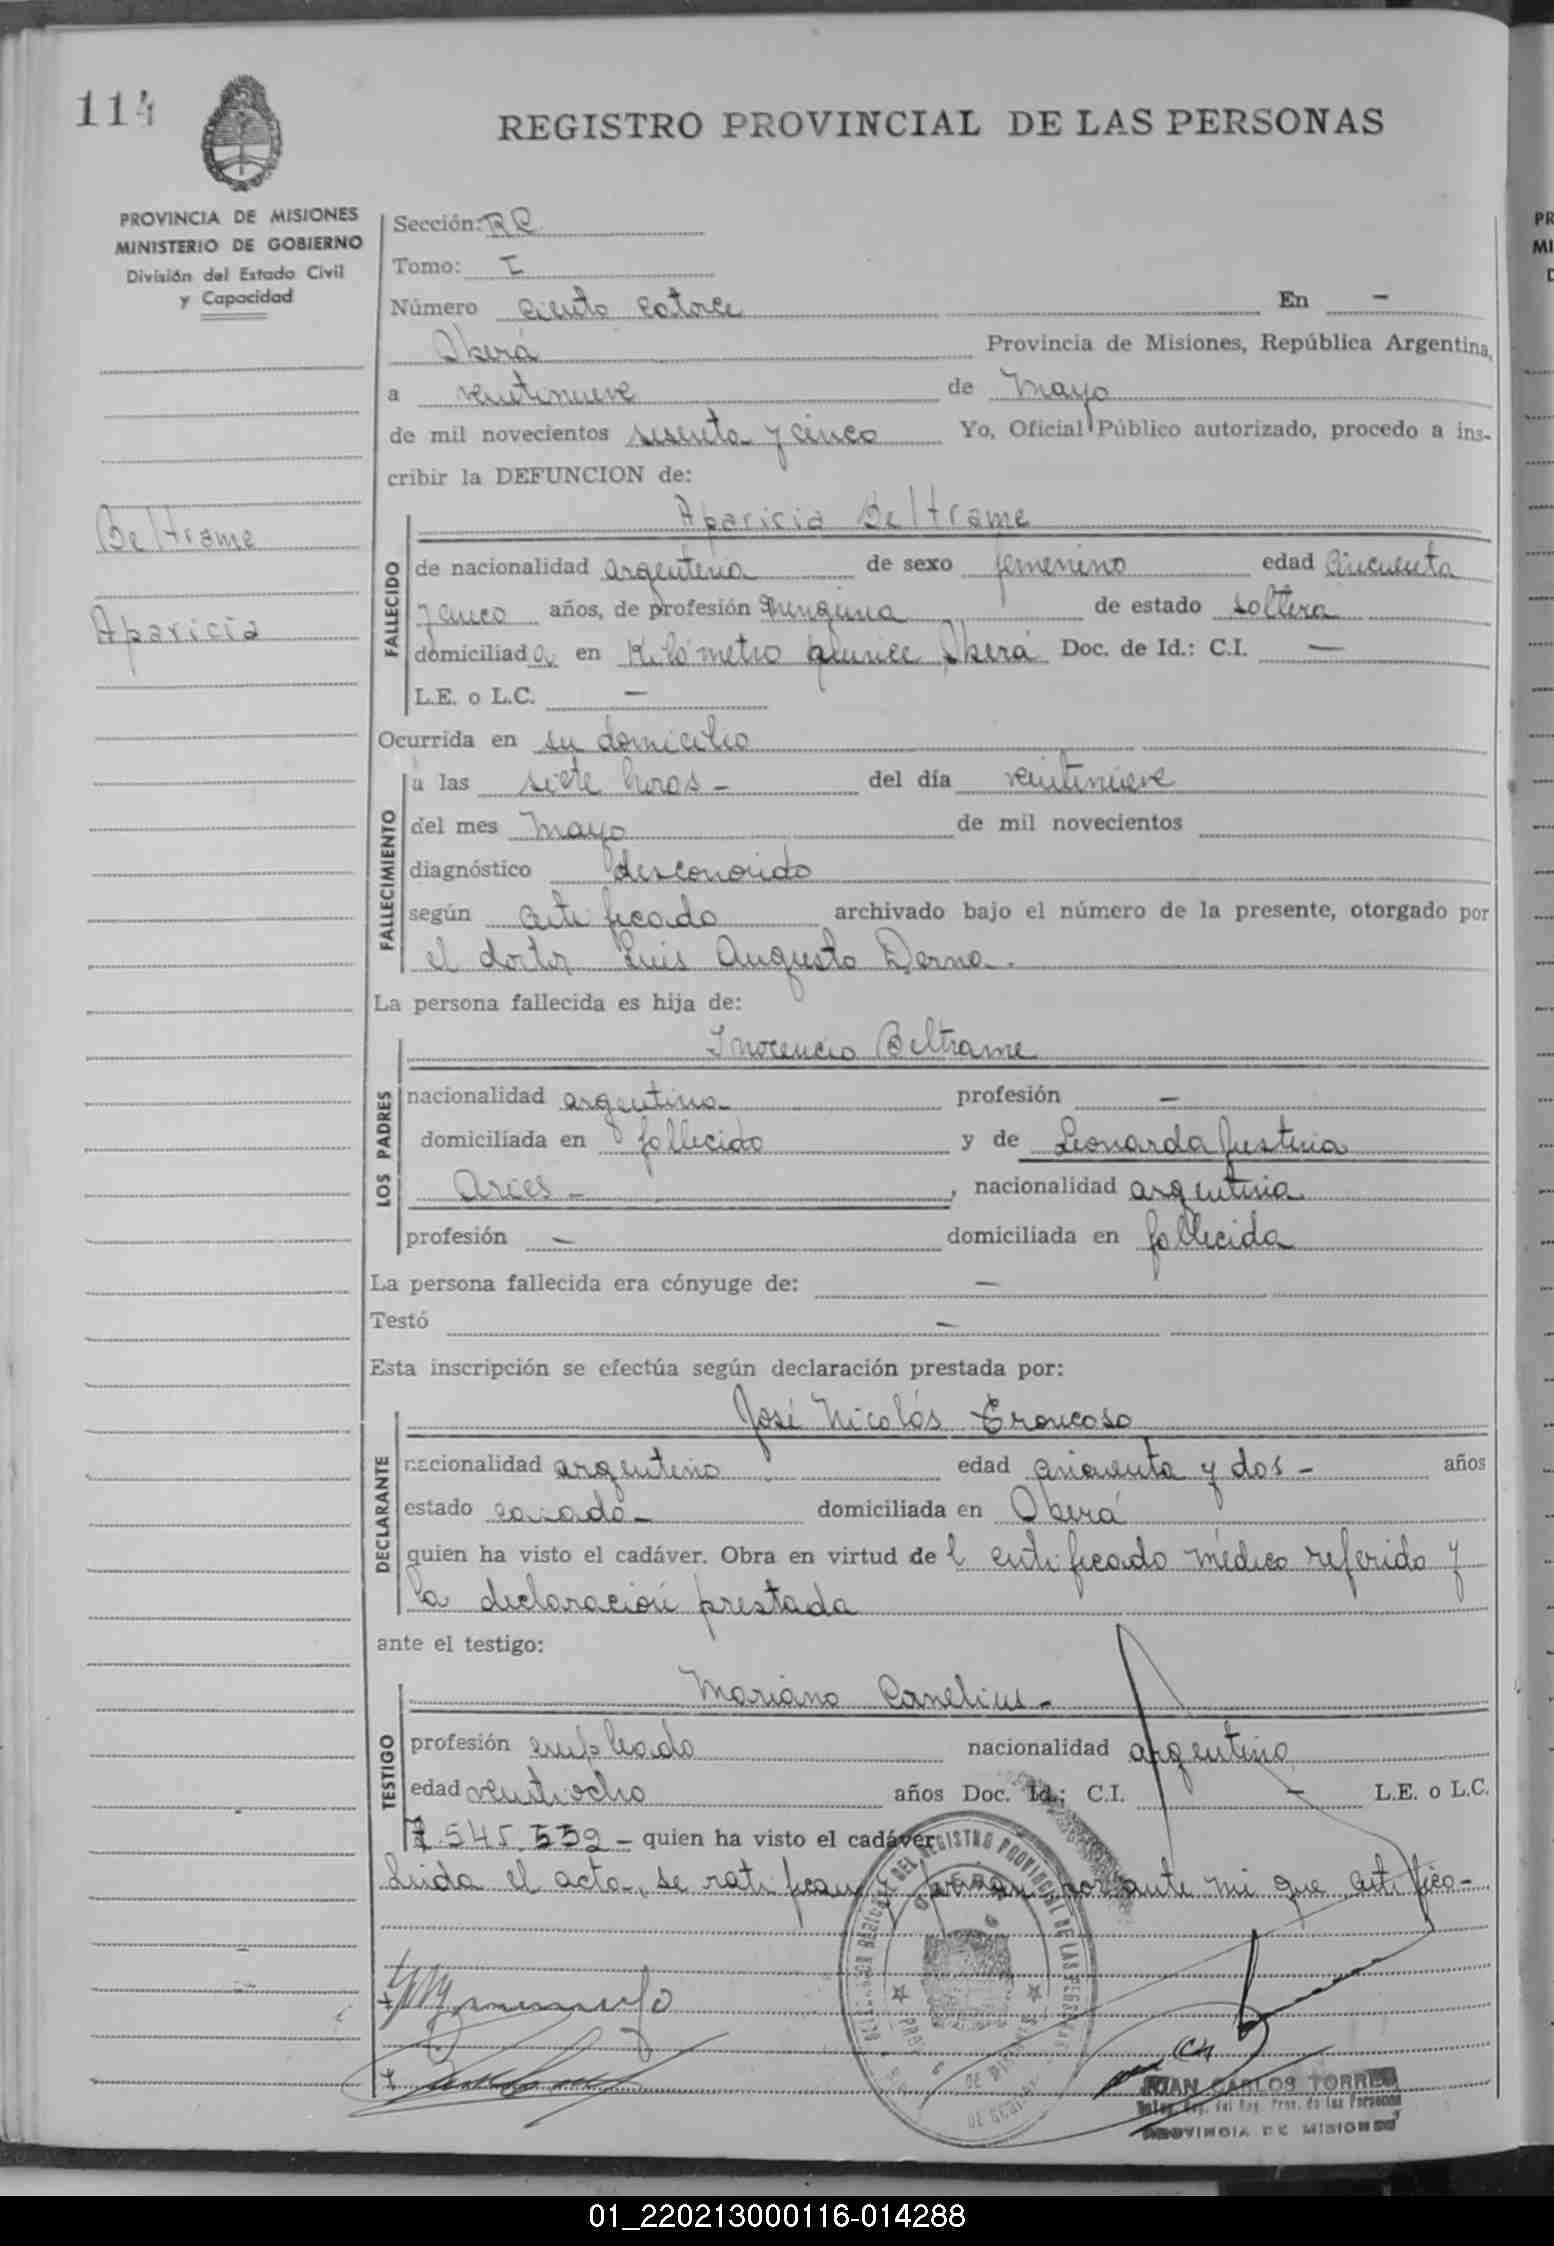 114
REGISTRO PROVINCIAL DE LAS PERSONAS
PROVINCIA DE MISIONES
MINISTERIO DE GOBIERNO
División del Estado Civil
y Capacidad
Beltrame
Aparicia
Sección: RR
Tomo: I
Número ciento catorce En -
Oberá Provincia de Misiones, República Argentina,
a veintinueve de Mayo
de mil novecientos sesenta y cinco Yo, Oficial Público autorizado, procedo a ins-
cribir la DEFUNCION de:
Aparicia Beltrame
FALLECIDO
de nacionalidad argentina de sexo femenino edad cincuenta
y cinco años, de profesión ninguna de estado soltera
domiciliada en Kilómetro quince Oberá Doc. de Id.: C.I. —
L.E. o L.C. —
Ocurrida en su domicilio
FALLECIMIENTO
a las siete horas - del día veintinueve
del mes Mayo de mil novecientos
diagnóstico desconocido
según certificado archivado bajo el número de la presente, otorgado por
el doctor Luis Augusto Derna.
La persona fallecida es hija de:
LOS PADRES
Inocencio Beltrame
nacionalidad argentina profesión —
domiciliada en fallecido y de Leonarda Justina
Arces - , nacionalidad argentina
profesión — domiciliada en fallecida
La persona fallecida era cónyuge de: —
Testó —
Esta inscripción se efectúa según declaración prestada por:
DECLARANTE
José Nicolás Troncoso
nacionalidad argentino edad cincuenta y dos - años
estado casado - domiciliada en Oberá
quien ha visto el cadáver. Obra en virtud de l certificado médico referido y
la declaración prestada
ante el testigo:
TESTIGO
Mariano Canelius -
profesión empleado nacionalidad argentino
edad veintiocho años Doc. Id.: C.I. — L.E. o L.C.
7.545.559 - quien ha visto el cadáver
Leida el acta, se ratifican y firman por ante mi que certifico -
JUAN CARLOS TORRES
del Reg. Prov. de las Personas
PROVINCIA DE MISIONES
01_220213000116-014288